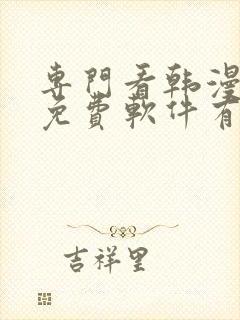 專門看韩漫
免費軟件有
吉祥里